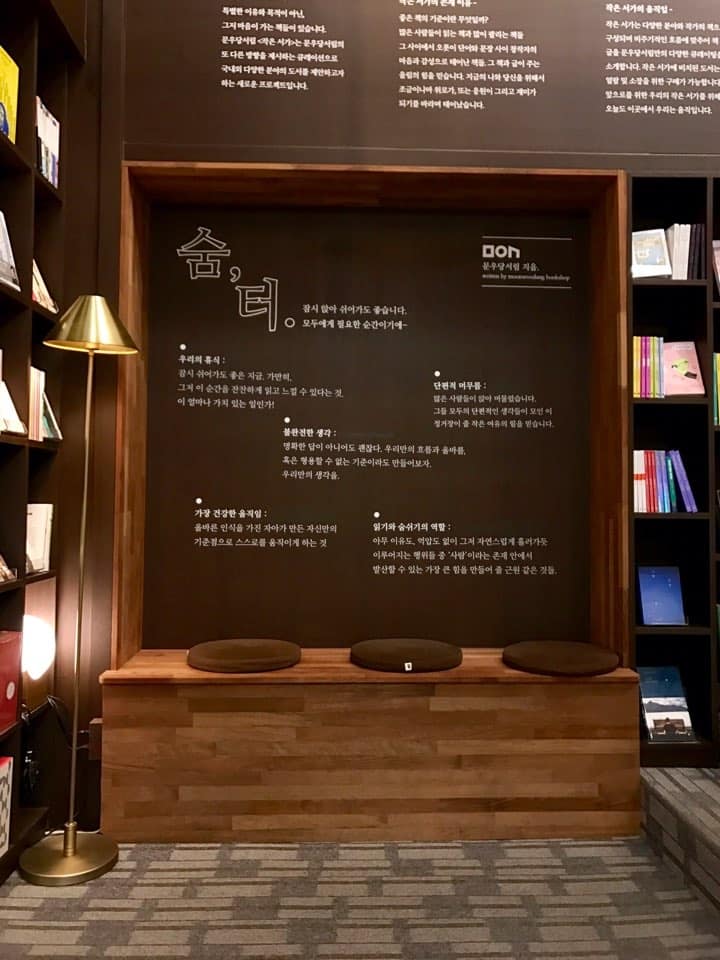 특별한 이유와 목적이 아닌,
그저 마음이 가는 책들이 있습니다.
문우당서림 <작은 서가>는 문우당서림의
또 다른 방향을 제시하는 큐레이션으로
국내외 다양한 분야의 도서를 제안하고자
하는 새로운 프로젝트입니다.
작은 서가의 존재 이유 -
좋은 책의 기준이란 무엇일까?
많은 사람들이 읽는 책과 많이 팔리는 책들
그 사이에서 오롯이 단어와 문장 사이 창작자의
마음과 감성으로 태어난 책들, 그 책과 글이 주는
울림의 힘을 믿습니다. 지금의 나와 당신을 위해서
조금이나마 위로가, 또는 응원이 그리고 재미가
되기를 바라며 태어났습니다.
작은 서가의 움직임 -
작은 서가는 다양한 분야와 작가의 책으
구성되며 비주기적인 흐름에 맞추어 책
글을 문우당서림만의 다양한 큐레이션을
소개합니다. 작은 서가에 비치된 도서는
열람 및 소장을 위한 구매가 가능합니다
앞으로를 위한 우리의 작은 서가를 위해
오늘도 이곳에서 우리는 움직입니다.
숨,
터。
잠시 앉아 쉬어가도 좋습니다.
모두에게 필요한 순간이기에~
문우당서림 지음.
written by moonwoodang bookshop
우리의 휴식 :
잠시 쉬어가도 좋은 지금. 가만히,
그저 이 순간을 잔잔하게 읽고 느낄 수 있다는 것.
이 얼마나 가치 있는 일인가!
단편적 머무름 :
많은 사람들이 앉아 머물렀습니다.
그들 모두의 단편적인 생각들이 모인 이
정거장이 줄 작은 여유의 힘을 믿습니다.
불완전한 생각 :
명확한 답이 아니어도 괜찮다. 우리만의 흐름과 올바름,
혹은 형용할 수 없는 기준이라도 만들어보자.
우리만의 생각을.
가장 건강한 움직임 :
올바른 인식을 가진 자아가 만든 자신만의
기준점으로 스스로를 움직이게 하는 것
읽기와 숨쉬기의 역할 :
아무 이유도, 억압도 없이 그저 자연스럽게 흘러가듯
이루어지는 행위들 중 '사람'이라는 존재 안에서
발산할 수 있는 가장 큰 힘을 만들어 줄 근원 같은 것들.